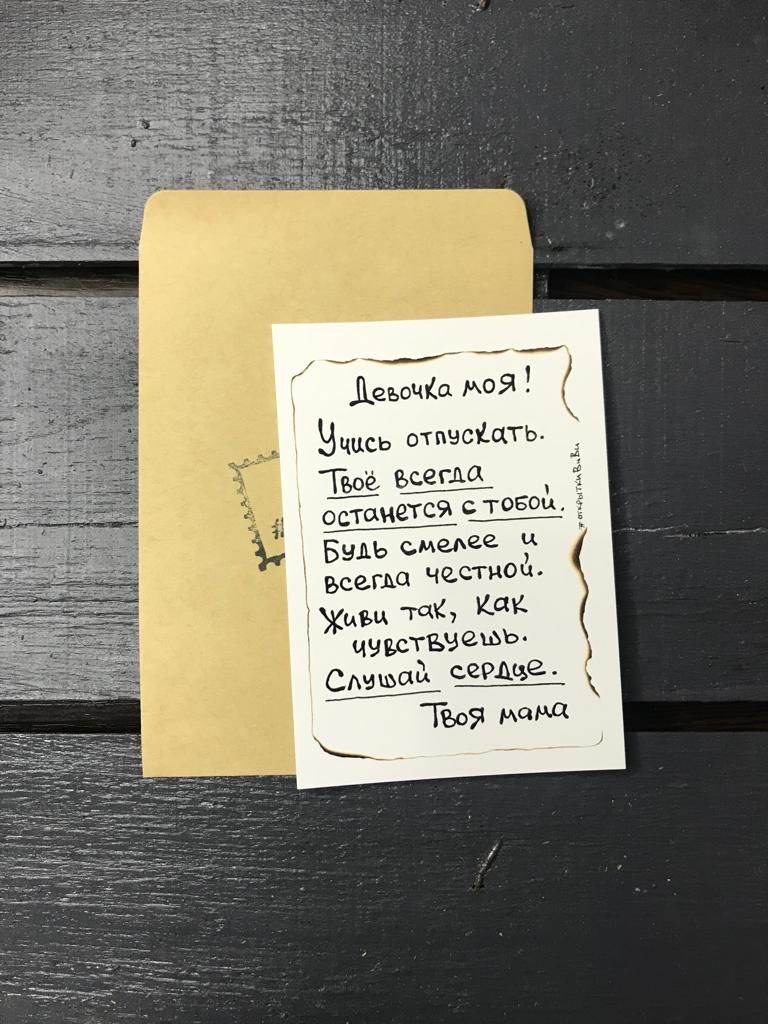 Девочка моя!
Учись отпускать.
Твоё всегда
останется с тобой.
Будь смелее и
всегда честной.
Живи так, как
чувствуешь.
Слушай сердце.
Твоя мама
#открыткиВиВи
#